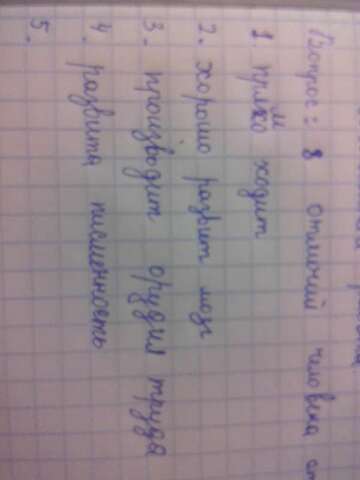 Вопрос: 8 отличий человека от
1. прямо ходит
2. хорошо развит мозг
3. производит орудия труда
4. развита письменность
5.